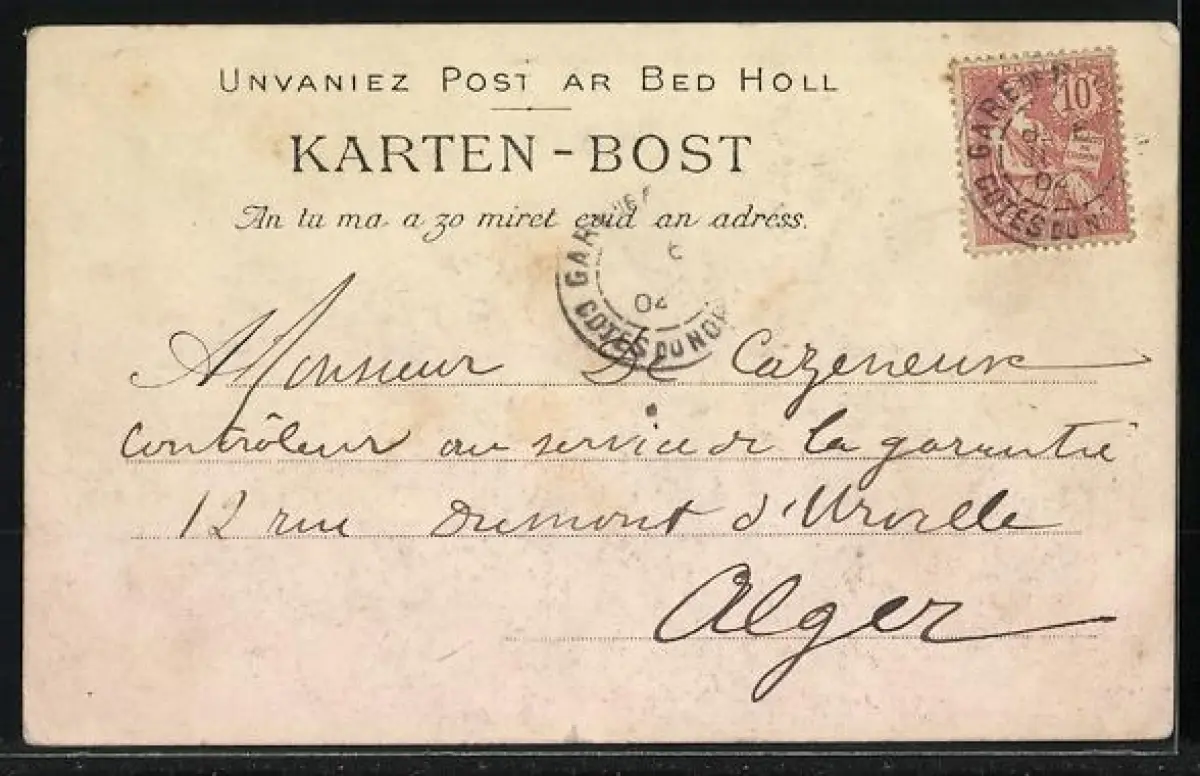 UNVANIEZ POST AR BED HOLL
KARTEN-BOST
An tu ma a zo miret evid an adress.
10
GARE
04
COTES DU N
GAR
6
04
COTES DU NOR
A Monsieur de Cazeneuve
Contrôleur au service de la garantie
12 rue Dumont d'Urville
Alger